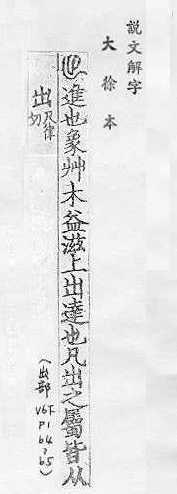 説文解字
大徐本
進也象艸木益滋上出達也凡出之屬皆从
出尺律切
(出部 V6下 P1 b4,b5)